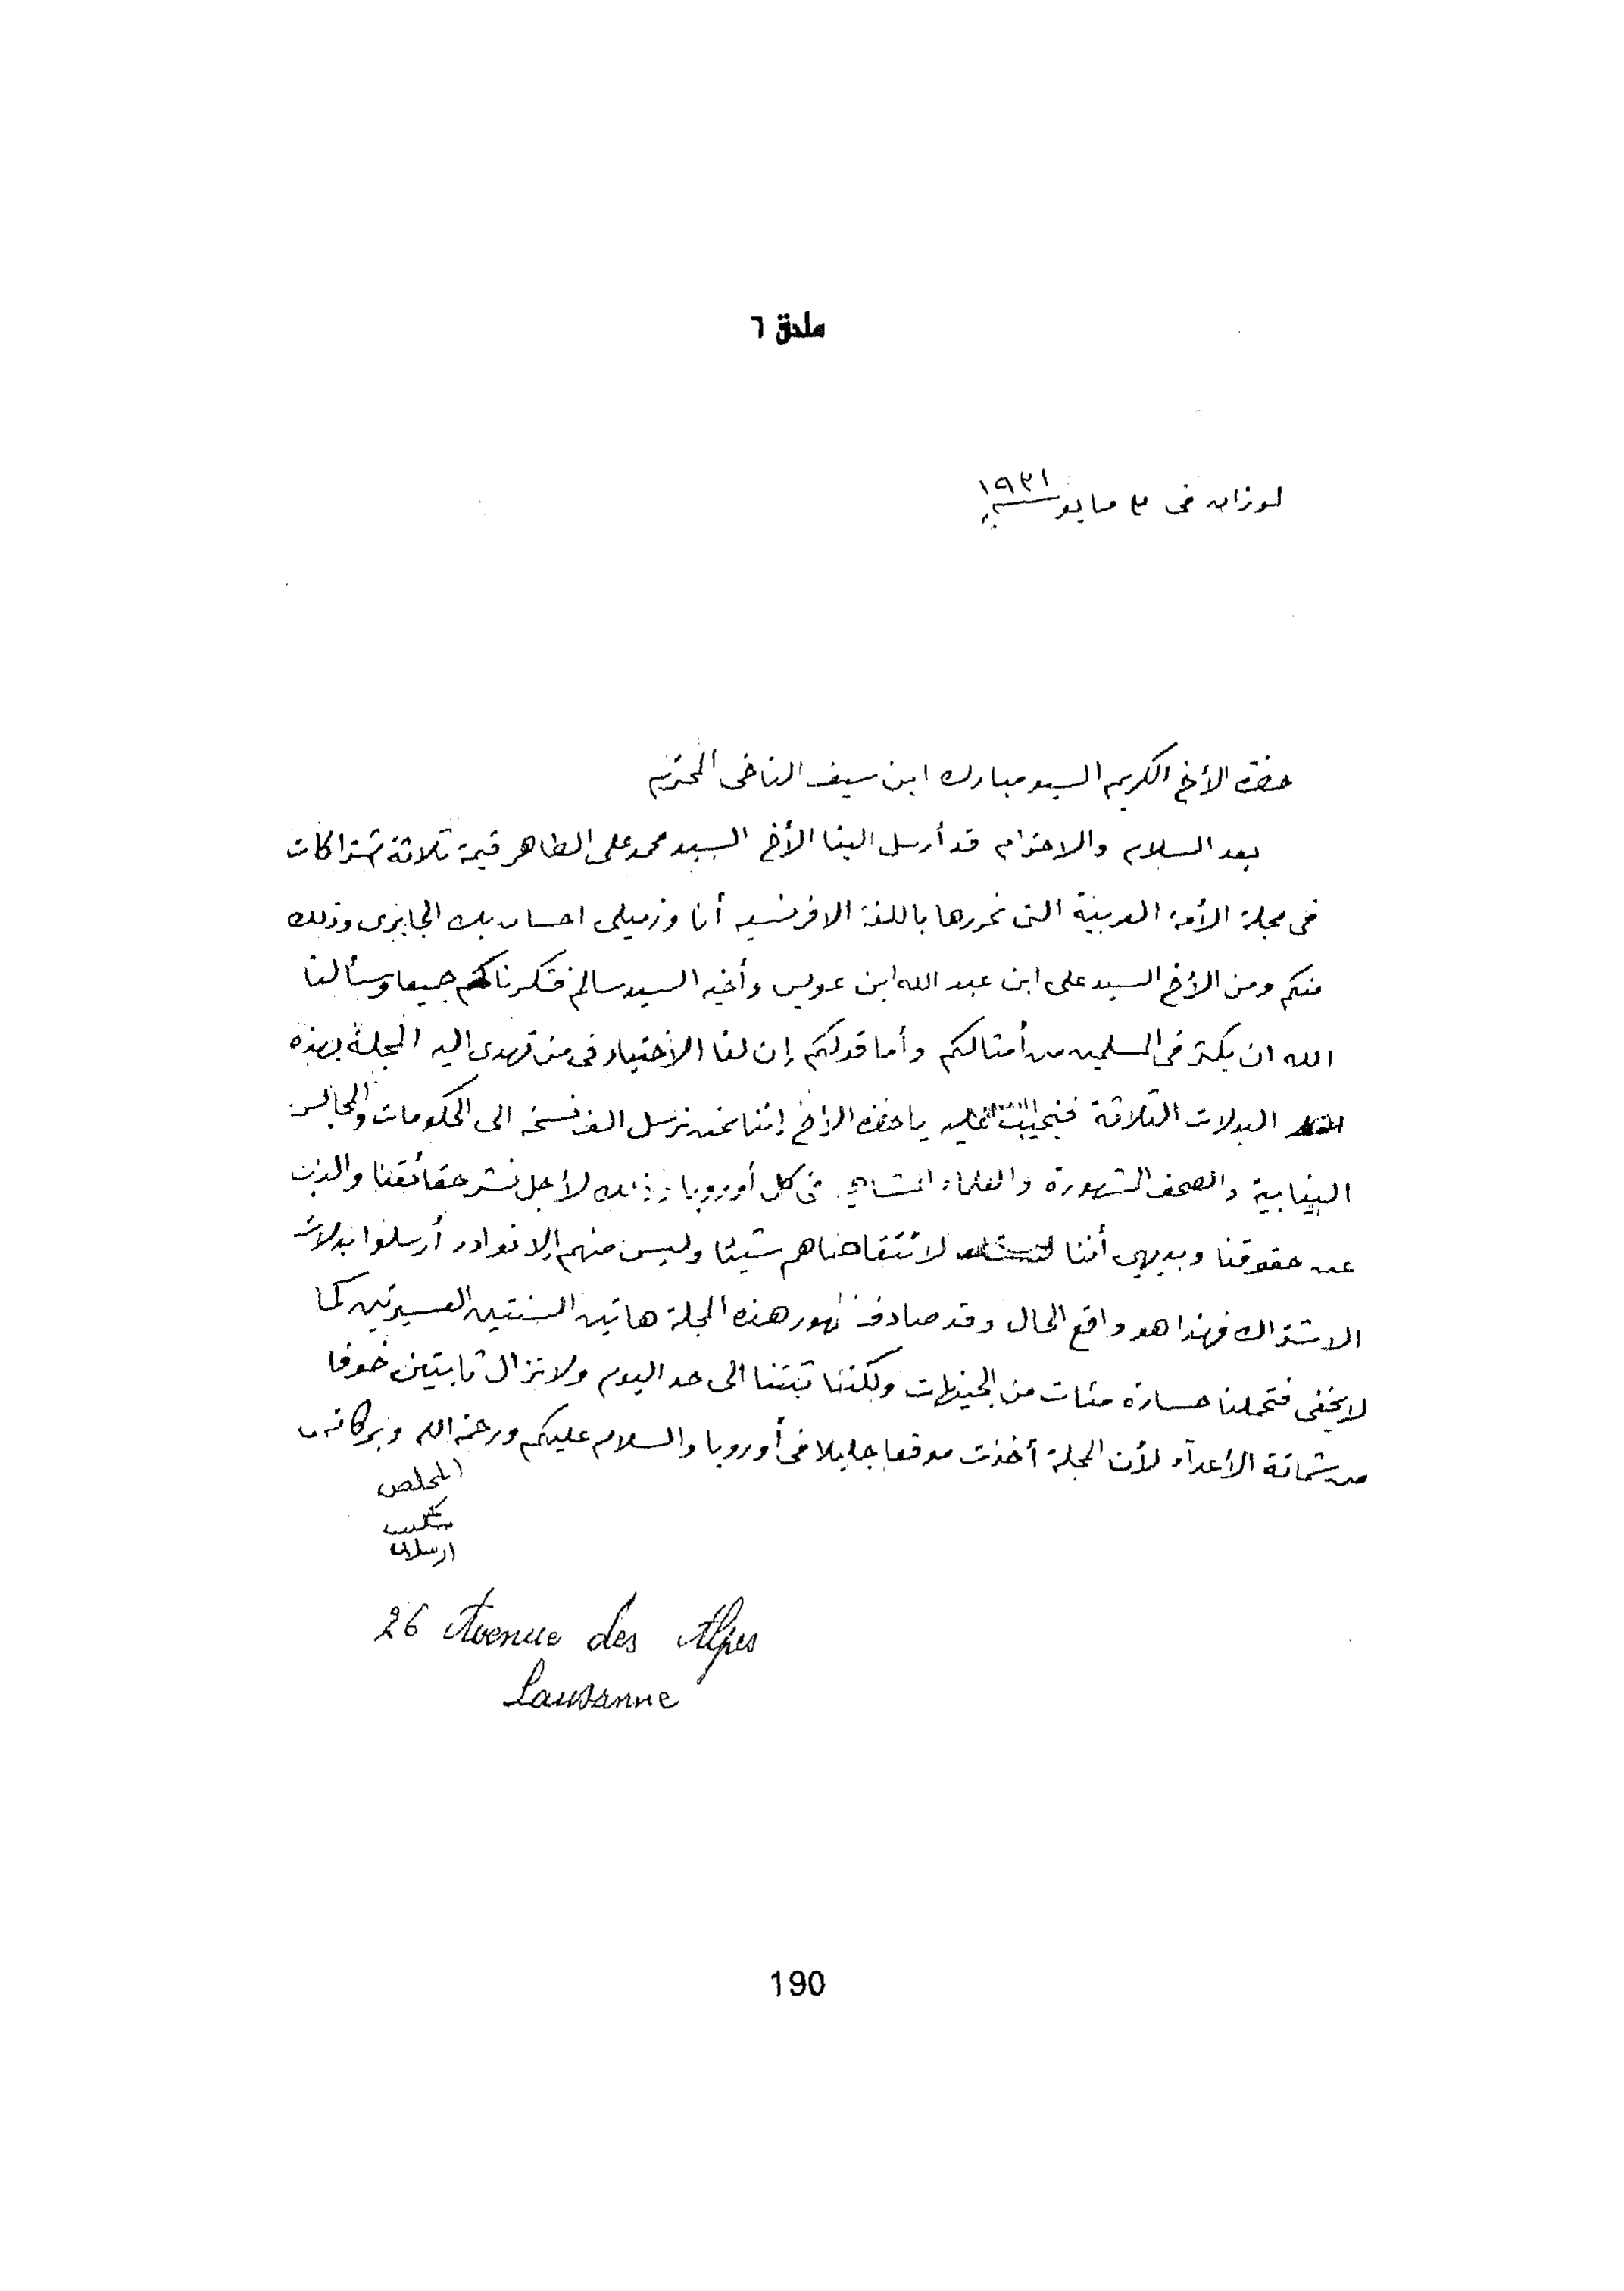 ملحق ٦
لوزان فى ٣ مايو سنة ١٩٣١
حضرة الأخ الكريم السيد مبارك ابن سيف الناخى المحترم
بعد السلام والاحترام قد أرسل الينا الأخ السيد محمد على الطاهر قيمة ثلاثة اشتراكات
فى مجلة الأمة العربية التى نحررها باللغة الافرنسية أنا وزميلى احسان بك الجابرى وذلك
منكم ومن الأخ السيد على ابن عبد الله ابن عويس وأخيه السيد سالم فتشكرناكم جميعا وسألنا
الله ان يكثر فى المسلمين من أمثالكم وأما قولكم إن لنا الاختيار فى من تهدى اليه المجلة بهذه
البدلات الثلاثة فنجيب عليه يا حضرة الأخ إننا نحن نرسل الف نسخة الى الحكومات والمجالس
النيابية والصحف الشهورة والعلماء المشاهير فى كل أوروبا وذلك لأجل نشر حقائقنا والذب
عن حقوقنا وبديهى أننا لا نتقاضاهم شيئا وليس منهم إلا نوادر أرسلوا بدلات
الاشتراك فهذا هو واقع الحال وقد صادف ظهور هذه المجلة هاتين السنتين العسيرتين كما
لا يخفى فتحملنا خسارة مئات من الجنيهات ولكننا ثبتنا الى حد اليوم ولا نزال ثابتين خوفا
من شماتة الأعداء لأن المجلة أخذت موقعا جليلا فى أوروبا والسلام عليكم ورحمة الله وبركاته
المخلص
شكيب
ارسلان
26 Avenue des Alpes
Lausanne
190